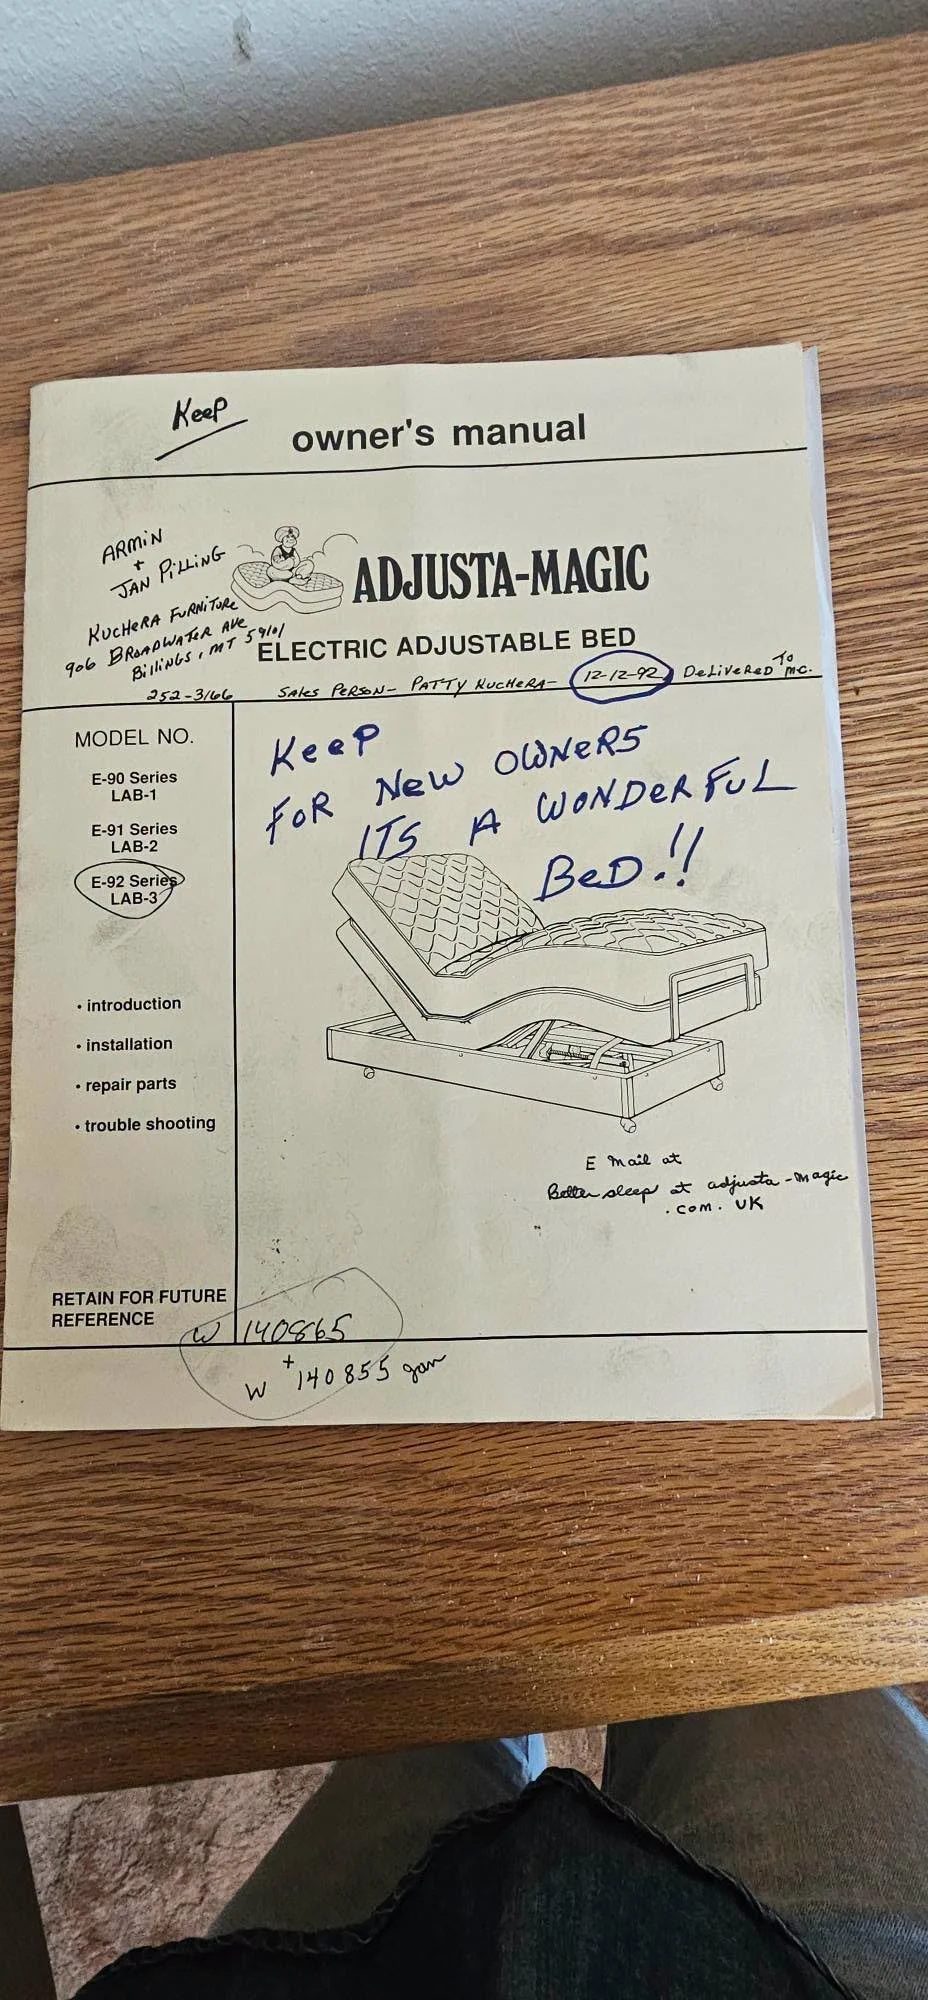 Keep
owner's manual
ARMIN
+
JAN PILLING
KUCHERA FURNITURE
906 BROADWATER AVE
Billings, MT 59101
252-3166
ADJUSTA-MAGIC
ELECTRIC ADJUSTABLE BED
Sales Person- PATTY KUCHERA- 12-12-92 DeLiveReD To M.C.
MODEL NO.
E-90 Series
LAB-1
E-91 Series
LAB-2
E-92 Series
LAB-3
• introduction
• installation
• repair parts
• trouble shooting
RETAIN FOR FUTURE
REFERENCE
KeeP
FOR NeW OWNeRS
ITS A WONDeRFUL
BeD.!!
E Mail at
Better sleep at adjusta-magic
.com. UK
W 140865
+
W 140855 Jan